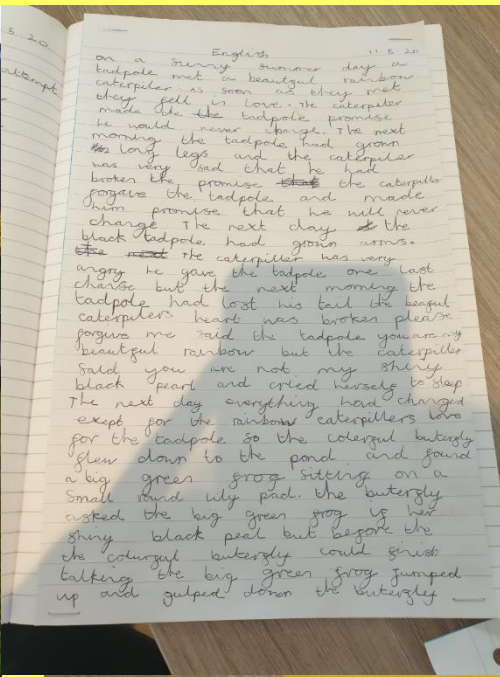 5.20
attempt
English
11.5.20
on a sunny summer day a
tadpole met a beautgul rainbow
caterpiler as soon as they met
they fell in love. The caterpiter
made the the tadpole promise
he would never change. The next
morning the tadpole had grown
long legs and the caterpiler
was very sad that he had
broken the promise that the caterpiller
forgave the tadpole and made
him promise that he will never
change The next day the
black tadpole had grown arms.
The next The caterpiller was very
angry he gave the tadpole one last
chanse but the next morning the
tadpole had lost his tail the
caterpilers heart was broken please
forgive me said the tadpole you are my
beautgul rainbow but the caterpiller
Said you are not my shiny
black pearl and cried herself to sleep
The next day everything had changed
exept for the rainbow caterpillers love
for the tadpole so the colerful buterfly
flew down to the pond and found
a big green frog sitting on a
Small round lily pad. the buterfly
asked the big green frog if her
shiny black peal but before the
the colurful buterfly could finish
talking the big green frog jumped
up and gulped down the buterfly